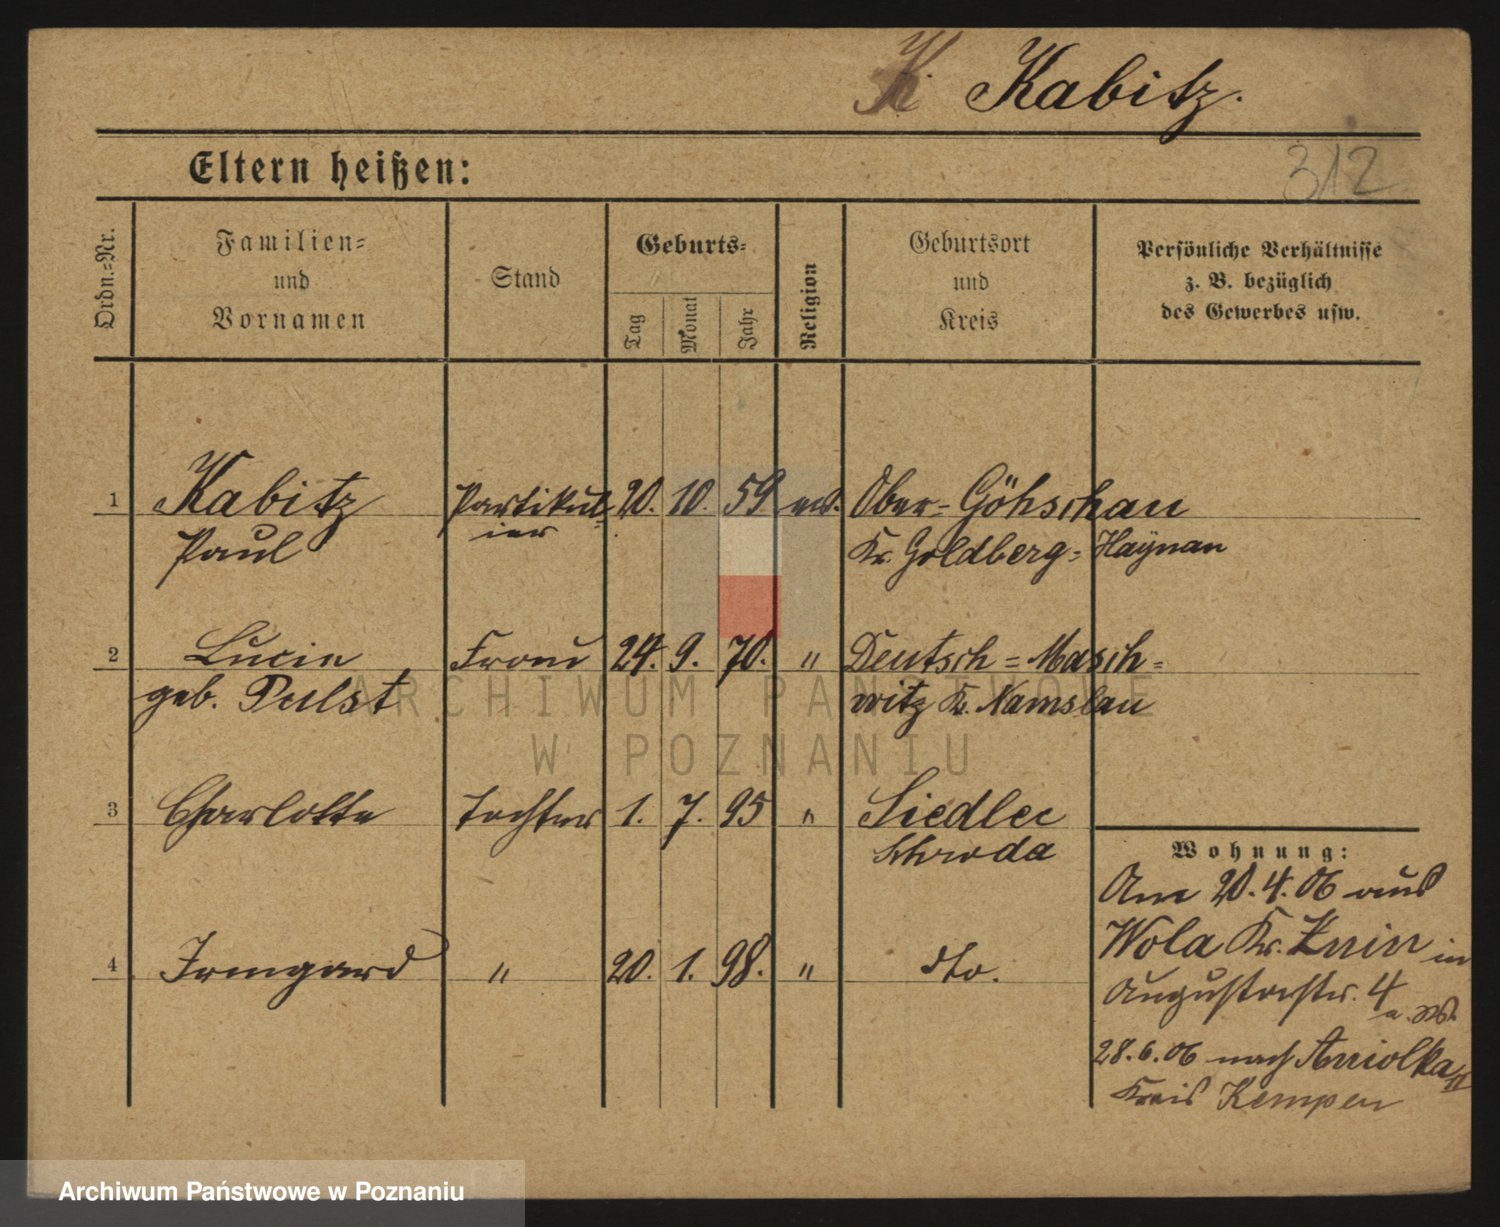 K Kabitz.
Eltern heißen:
312
Ordn.=Nr.
Familien=
und
Vornamen
Stand
Geburts=
Tag
Monat
Jahr
Religion
Geburtsort
und
Kreis
Persönliche Verhältnisse
z. B. bezüglich
des Gewerbes usw.
1 Kabitz Partikul= 20. 10. 59 ev. Ober-Göhschau
Paul ier Kr. Goldberg=Haynau
2 Lucie Frau 24. 9. 70. " Deutsch=Masch=
geb. Pulst witz Kr. Namslau
3 Charlotte Tochter 1. 7. 95 " Siedlec
Schroda
4 Irmgard " 20. 1. 98. " dto.
Wohnung:
Am 20.4.06 aus
Wola Kr. Znin in
Augustastr. 4
28.6.06 nach Aniolka II
Kreis Kempen
ARCHIWUM PAŃSTWOWE
W POZNANIU
Archiwum Państwowe w Poznaniu